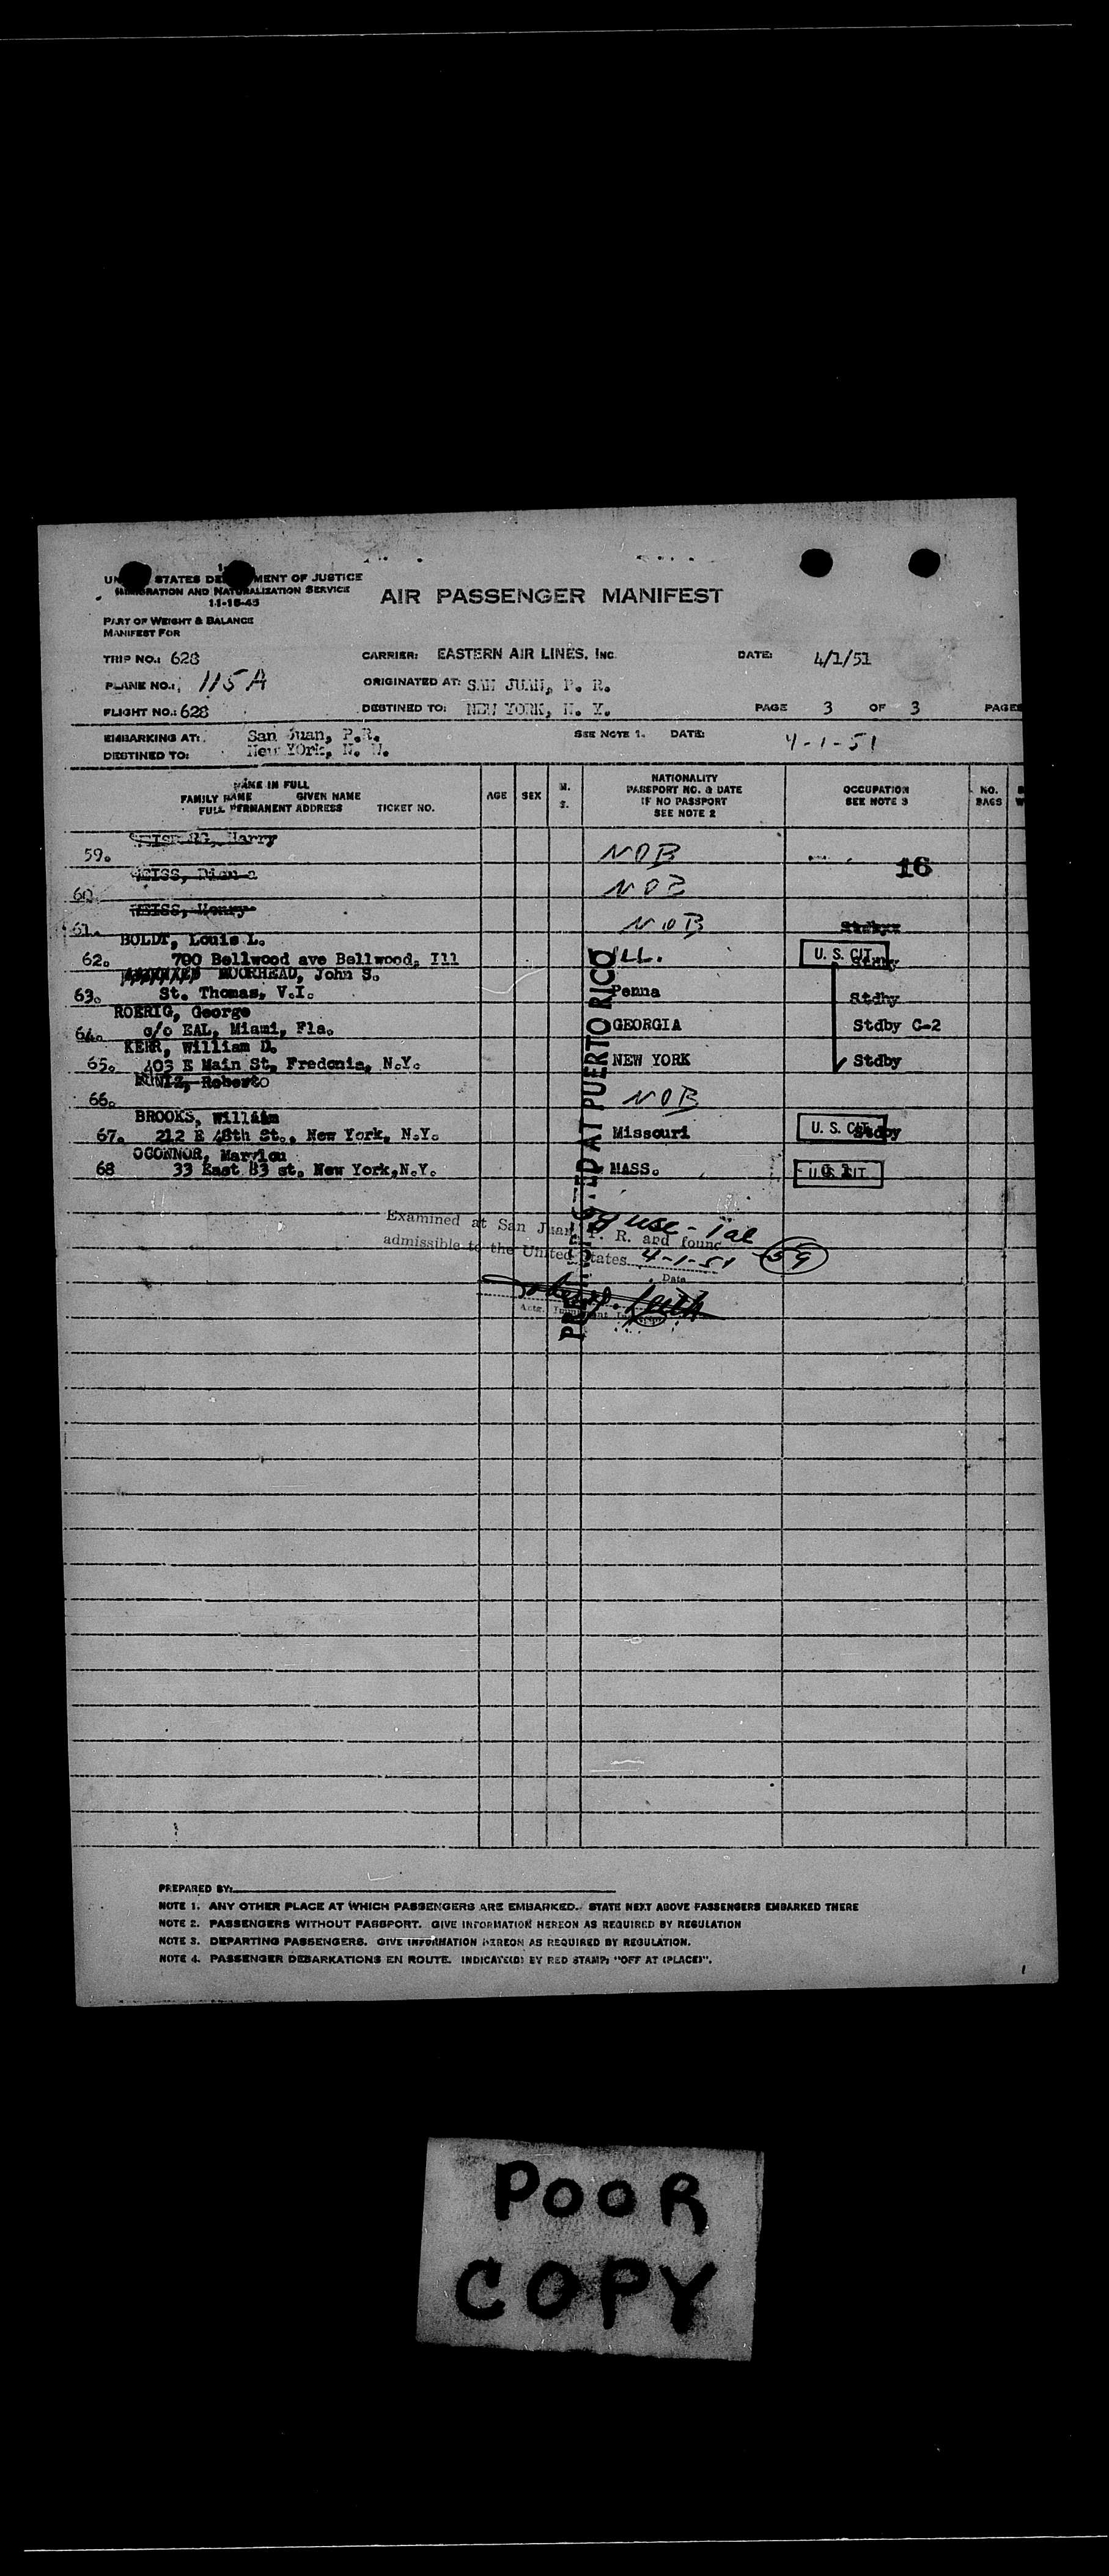 UN STATES DE MENT OF JUSTICE
IMMIGRATION AND NATURALIZATION SERVICE
11-16-45
AIR PASSENGER MANIFEST
PART OF WEIGHT & BALANCE
MANIFEST FOR
TRIP NO.: 628 CARRIER: EASTERN AIR LINES, INC. DATE: 4/1/51
PLANE NO.: 115A ORIGINATED AT: SAN JUAN, P. R.
FLIGHT NO.: 628 DESTINED TO: NEW YORK, N. Y. PAGE 3 OF 3 PAGES
EMBARKING AT: San Juan, P.R. SEE NOTE 1. DATE: 4-1-51
DESTINED TO: New YOrk, N. Y.
NAME IN FULL
FAMILY NAME GIVEN NAME
FULL PERMANENT ADDRESS TICKET NO.
AGE
SEX
M.
S.
NATIONALITY
PASSPORT NO. & DATE
IF NO PASSPORT
SEE NOTE 2
OCCUPATION
SEE NOTE 3
NO.
BAGS
Harry
59. NOB
16
WEISS,
60. NOB
WEISS, Henry
61. NOB
BOLDT, Louis L.
62. 700 Bellwood ave Bellwood, Ill ILL. U. S. CIT. Stdby
MOORHEAD, John S.
63. St. Thomas, V.I. Penna Stdby
ROERIG, George
64. c/o EAL, Miami, Fla. GEORGIA Stdby C-2
KERR, William D.
65. 403 E Main St, Fredonia, N.Y. NEW YORK Stdby
MUNIZ, Roberto
66. NOB
BROOKS, William
67. 212 E 48th St., New York, N.Y. Missouri U. S. CIT. Stdby
OCONNOR, Marylou
68 33 East 83 st. New York,N.Y. MASS. U. S. CIT.
PRE-INSPECTED AT PUERTO RICO
Examined at San Juan, P. R. and found
admissible to the United States 4-1-51
59
Date
PREPARED BY:
NOTE 1. ANY OTHER PLACE AT WHICH PASSENGERS ARE EMBARKED. STATE NEXT ABOVE PASSENGERS EMBARKED THERE
NOTE 2. PASSENGERS WITHOUT PASSPORT. GIVE INFORMATION HEREON AS REQUIRED BY REGULATION
NOTE 3. DEPARTING PASSENGERS. GIVE INFORMATION HEREON AS REQUIRED BY REGULATION.
NOTE 4. PASSENGER DEBARKATIONS EN ROUTE. INDICATE(D) BY RED STAMP; "OFF AT (PLACE)".
POOR
COPY